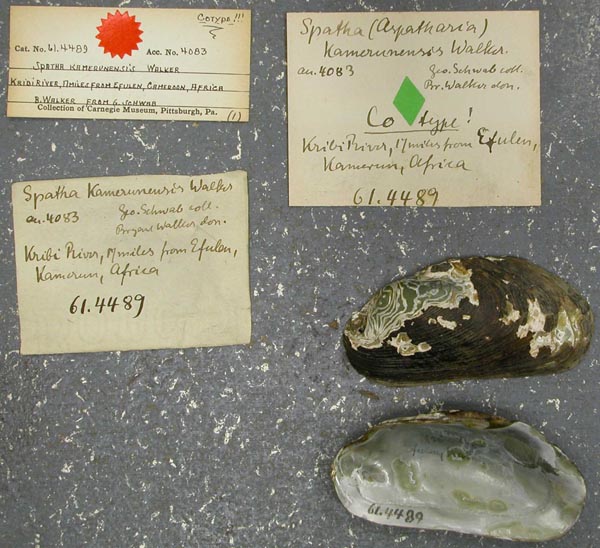 COTYPE!!!
Cat. No. 61.4489 Acc. No. 4083
SPATHA KAMERUNENSIS WALKER
KRIBI RIVER, 17 MILES FROM EFULEN, CAMEROON, AFRICA
B. WALKER FROM G. SCHWAB
Collection of Carnegie Museum, Pittsburgh, Pa.
(1)
Spatha (Aspatharia)
Kamerunensis Walker.
an. 4083 Geo. Schwab coll.
Br. Walker don.
Co type!
Kribi River, 17 miles from Efulen,
Kamerun, Africa
61.4489
Spatha Kamerunensis Walker
an. 4083 Geo. Schwab coll.
Bryant Walker don.
Kribi River, 17 miles from Efulen,
Kamerun, Africa
61.4489
61.4489